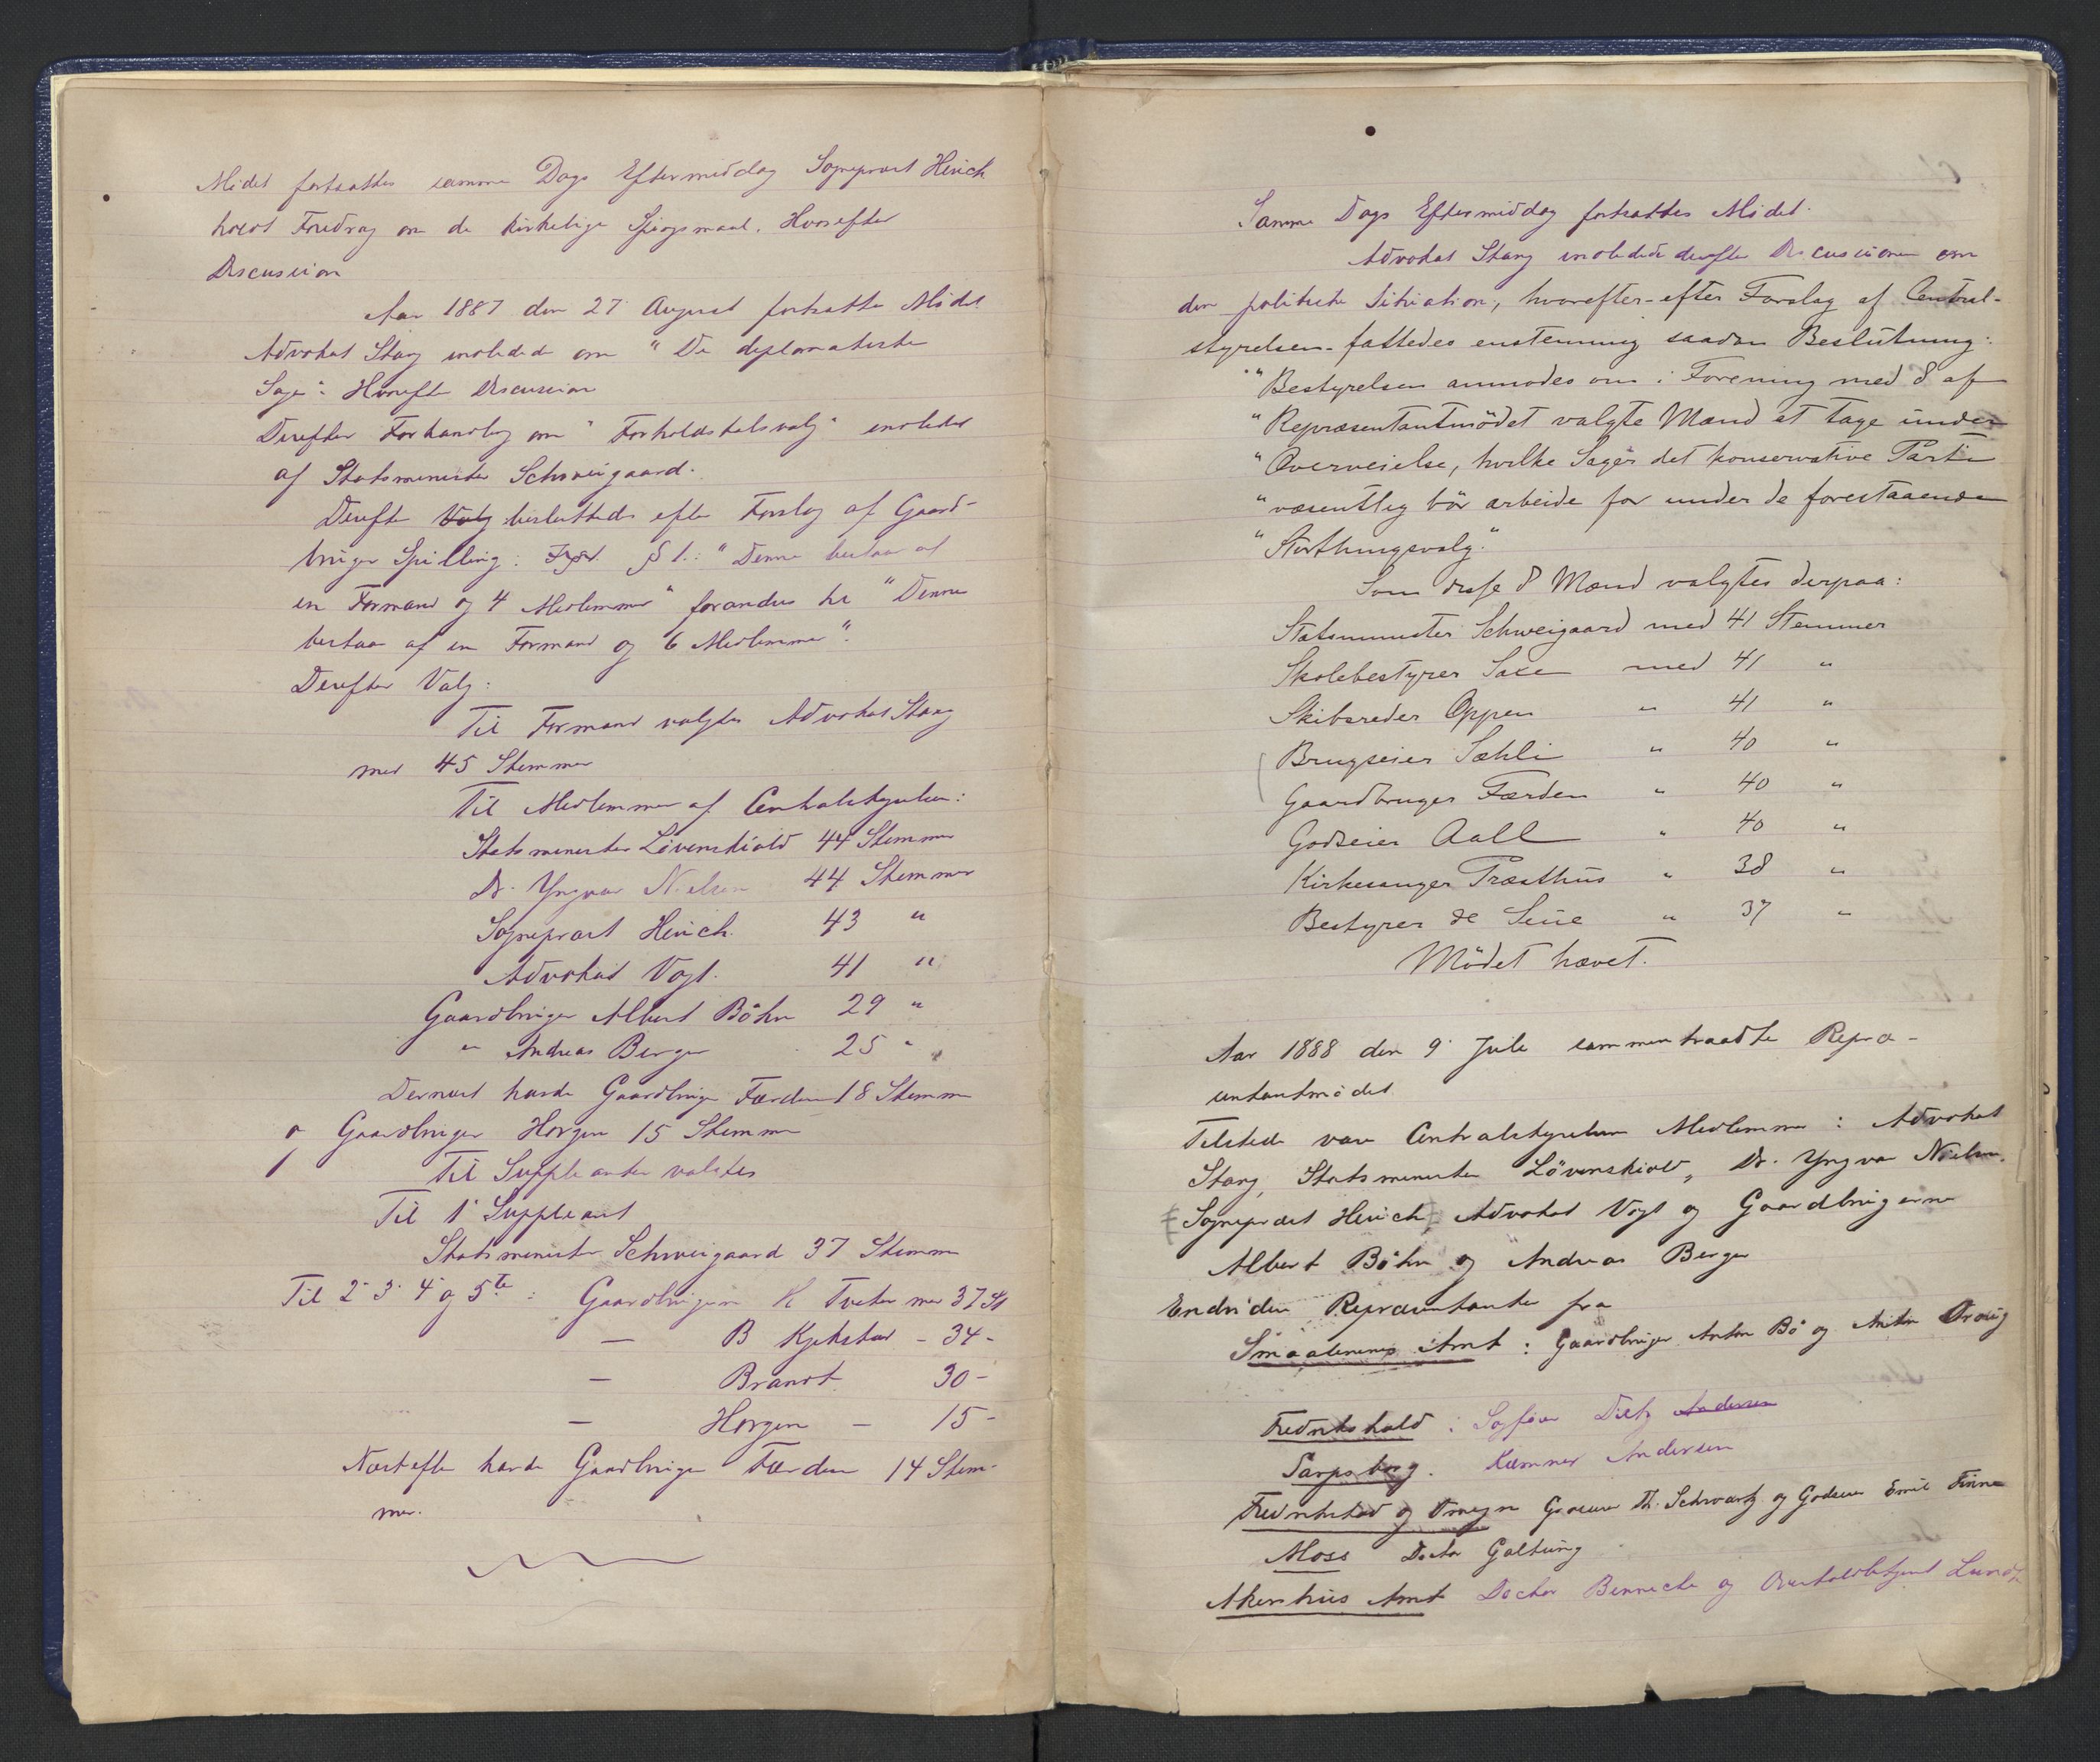 Mødet fortsattes samme Dags Eftermiddag Sogneprest Heuch
holdt Foredrag om de kirkelige Spørgsmaal. Hvorefter
Discussion
Aar 1887 den 27 August fortsatte Mødet
Advokat Stang indledede om "De diplomatiske
Sager". Hvorefter Discussion
Derefter Forhandling om "Forholdstalsvalg" indledet
af Statsminister Schweigaard.
Derefter Valg besluttedes efter Forslag af Gaard-
bruger Spilling: § 1.: "Denne bestaar af
en Formand og 4 Medlemmer" forandres til "Denne
bestaar af en Formand og 6 Medlemmer".
Derefter Valg:
Til Formand valgtes Advokat Stang
med 45 Stemmer
Til Medlemmer af Centralstyrelsen:
Statsminister Løvenskiold 44 Stemmer
Dr. Yngvar Nielsen 44 Stemmer
Sogneprest Heuch. 43 "
Advokat Vogt. 41 "
Gaardbruger Albert Bøhn 29 "
" Andreas Berger 25 "
Dernæst havde Gaardbruger Færden 18 Stemmer
og Gaardbruger Horgen 15 Stemmer
Til Suppleanter valgtes
Til 1 Suppleant
Statsminister Schweigaard 37 Stemmer
Til 2 3 4 og 5te: Gaardbrugerne K Tveter med 37 St
— B Kjekstad - 34 -
— Brandt 30 -
— Horgen — 15 -
Næstefter havde Gaardbruger Færden 14 Stem-
mer.
Samme Dags Eftermiddag fortsattes Mødet.
Advokat Stang indledede derefter Discussionen om
den politiske Situation, hvorefter - efter Forslag af Central-
styrelsen - fattedes enstemmig saadan Beslutning:
"Bestyrelsen anmodes om i Forening med 8 af
"Repræsentantmödet valgte Mænd at tage under
"Overveielse, hvilke Sager det konservative Parti
"væsentlig bör arbeide for under de forestaaende
"Storthingsvalg."
Som disse 8 Mænd valgtes derpaa:
Statsminister Schweigaard med 41 Stemmer
Skolebestyrer Saxe med 41 "
Skibsreder Oppen " 41 "
Brugseier Sæhli " 40 "
Gaardbruger Færden " 40 "
Godseier Aall " 40 "
Kirkesanger Præsthus " 38 "
Bestyrer de Seue " 37 "
Mödet hævet.
Aar 1888 den 9 Juli sammentraadte Repræ-
sentantmødet
Tilstede vare Centralstyrelsens Medlemmer: Advokat
Stang, Statsminister Lövenskiold, Dr. Yngvar Nielsen.
Sogneprest Heuch, Advokat Vogt og Gaardbrugerne
Albert Bøhn og Andreas Berger
Endvidere Repræsentanter fra
Smaalenenes Amt: Gaardbruger Anton Bø og Anton
Fredrikshald: Sagfører Dietz Andersen
Sarpsborg. Kæmner Andersen
Fredrikstad og Omegn Th. Schwartz og Godseier Emil Finne
Moss Doctor Galtung
Akershus Amt Doctor Benneche og Lund